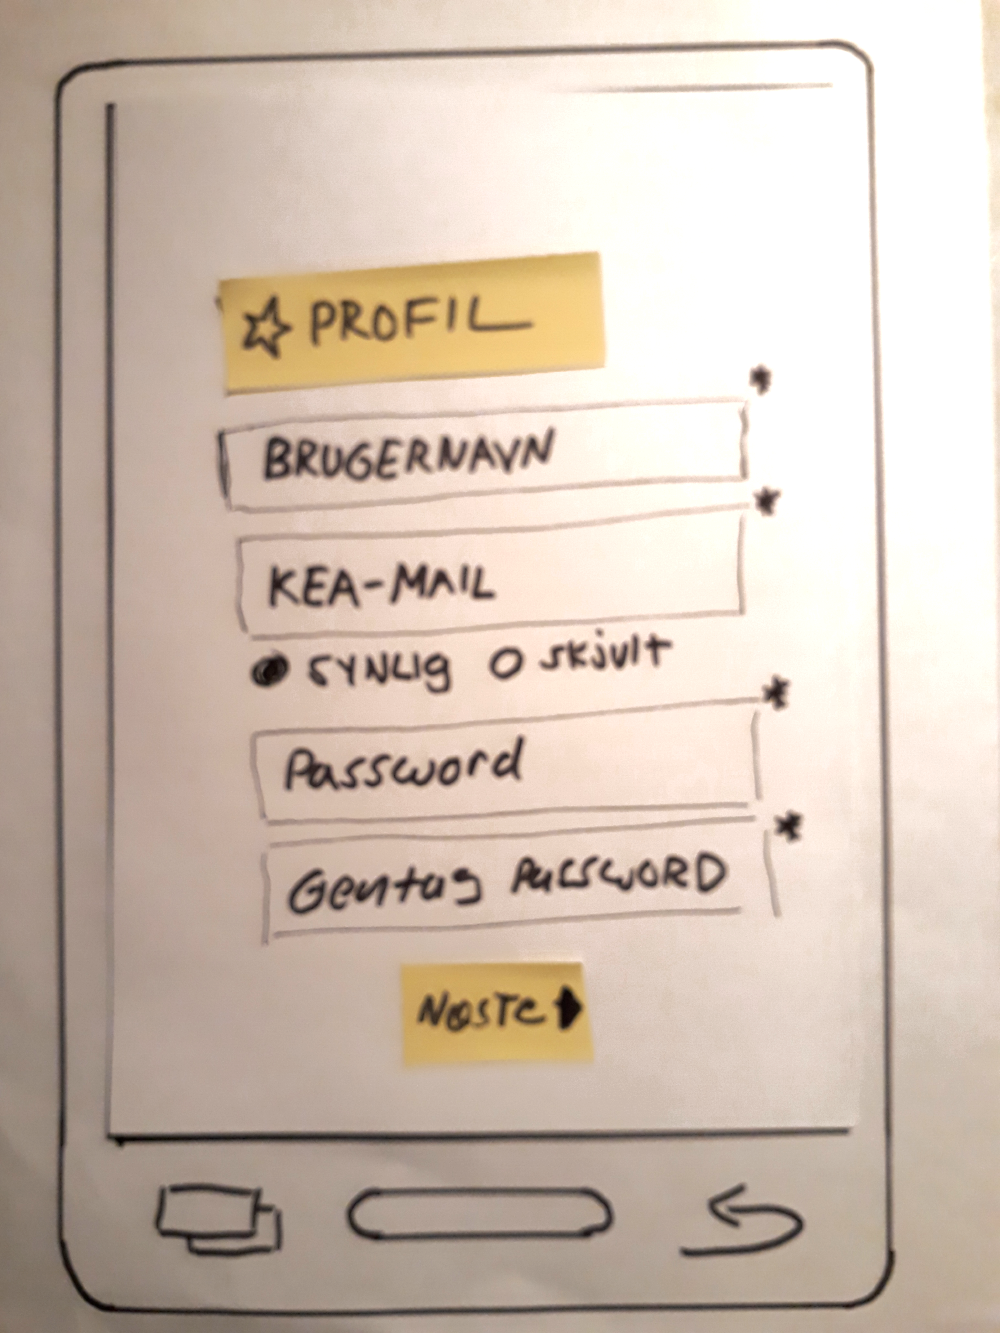 ☆ PROFIL
*
BRUGERNAVN
*
KEA-MAIL
SYNLIG SKJULT
*
Password
*
Gentag PASSWORD
NÆSTE